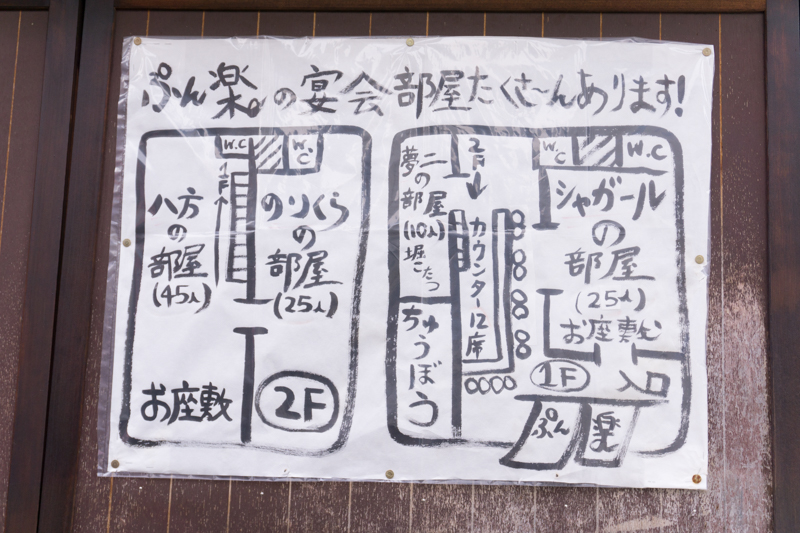 ぷん楽の宴会部屋たくさ〜んあります!
W.C
W.C
1F
八方
の
部屋
(45人)
のりくら
の
部屋
(25人)
お座敷
2F
夢二の部屋(10人)
堀こたつ
ちゅうぼう
2F
カウンター12席
W.C
W.C
シャガール
の
部屋
(25人)
お座敷
1F
入口
ぷん
楽